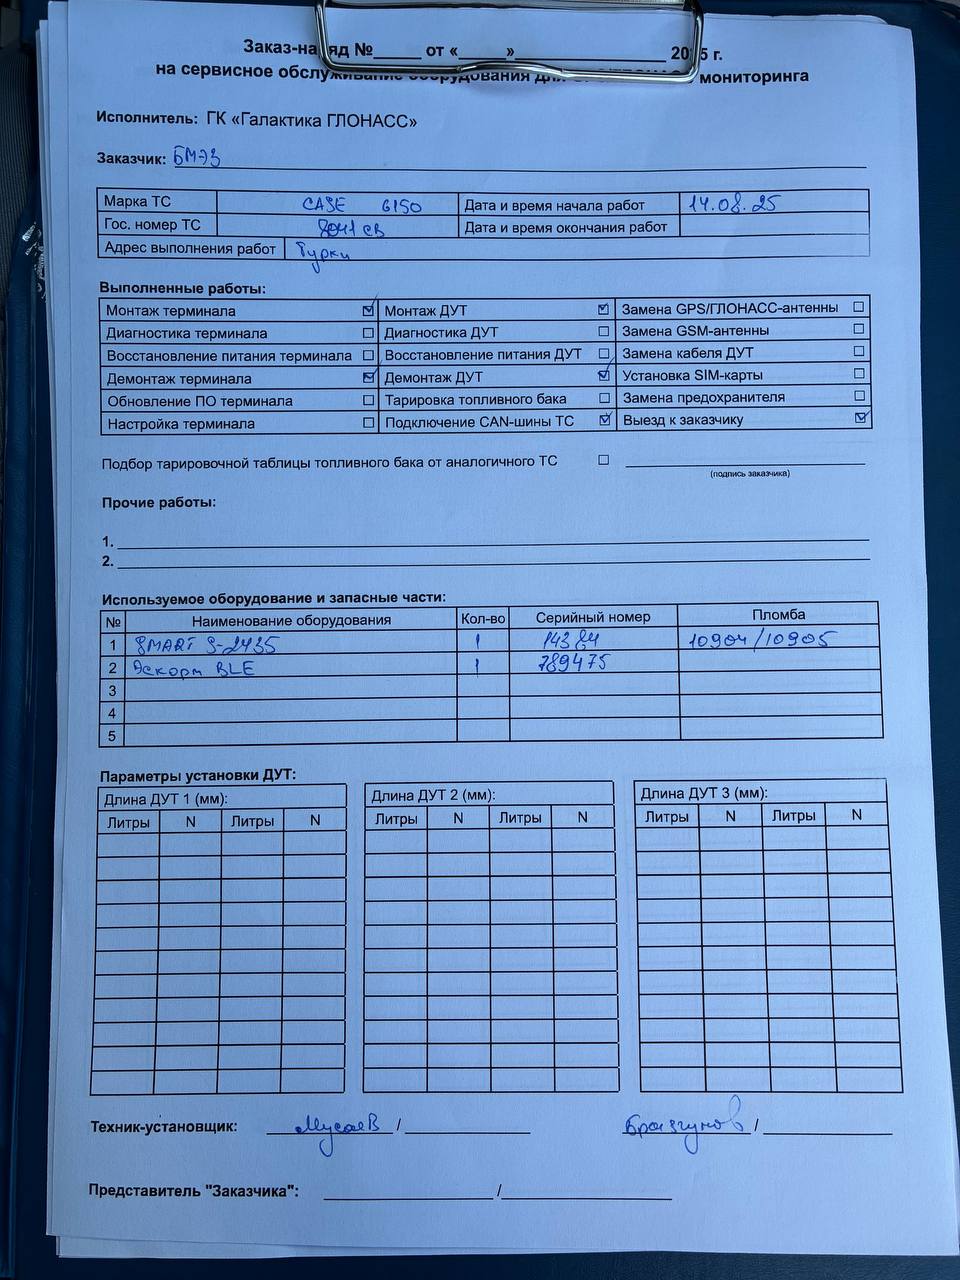 Заказ-наряд №_____ от «_____»________________ 2025 г.
на сервисное обслуживание оборудования для мониторинга
Исполнитель: ГК «Галактика ГЛОНАСС»
Заказчик: БМЭЗ
Марка ТС CASE 6150 Дата и время начала работ 14.08.25
Гос. номер ТС 8041 СВ Дата и время окончания работ
Адрес выполнения работ Турки
Выполненные работы:
Монтаж терминала ☑ Монтаж ДУТ ☑ Замена GPS/ГЛОНАСС-антенны ☐
Диагностика терминала ☐ Диагностика ДУТ ☐ Замена GSM-антенны ☐
Восстановление питания терминала ☐ Восстановление питания ДУТ ☐ Замена кабеля ДУТ ☐
Демонтаж терминала ☑ Демонтаж ДУТ ☑ Установка SIM-карты ☐
Обновление ПО терминала ☐ Тарировка топливного бака ☐ Замена предохранителя ☐
Настройка терминала ☐ Подключение CAN-шины ТС ☑ Выезд к заказчику ☑
Подбор тарировочной таблицы топливного бака от аналогичного ТС ☐
(подпись заказчика)
Прочие работы:
1.
2.
Используемое оборудование и запасные части:
№ Наименование оборудования Кол-во Серийный номер Пломба
1 SMART S-2435 1 14384 10904/10905
2 Эскорт BLE 1 789475
3
4
5
Параметры установки ДУТ:
Длина ДУТ 1 (мм): Длина ДУТ 2 (мм): Длина ДУТ 3 (мм):
Литры N Литры N Литры N Литры N Литры N Литры N
Техник-установщик: Мусаев / Бразгунов /
Представитель "Заказчика": /